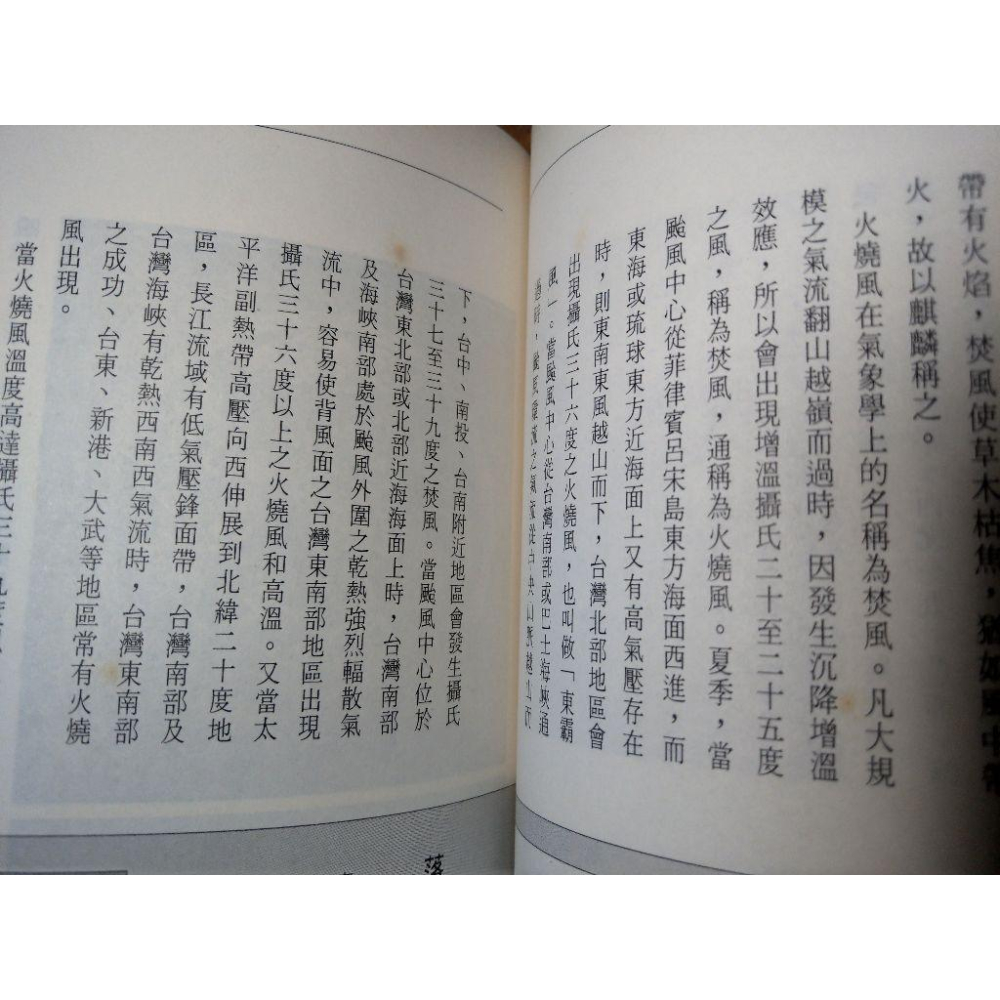 帶有火焰，焚風使草木枯焦，猶如風中帶
火，故以麒麟稱之。
火燒風在氣象學上的名稱為焚風。凡大規
模之氣流翻山越嶺而過時，因發生沉降增溫
效應，所以會出現增溫攝氏二十至二十五度
之風，稱為焚風，通稱為火燒風。夏季，當
颱風中心從菲律賓呂宋島東方海面西進，而
東海或琉球東方近海面上又有高氣壓存在
時，則東南東風越山而下，台灣北部地區會
出現攝氏三十六度之火燒風，也叫做「東霸
風」。當颱風中心從台灣南部或巴士海峽通
過時，颱風環流之氣流從中央山脈越山而
下，台中、南投、台南附近地區會發生攝氏
三十七至三十九度之焚風。當颱風中心位於
台灣東北部或北部近海海面上時，台灣南部
及海峽南部處於颱風外圍之乾熱強烈輻散氣
流中，容易使背風面之台灣東南部地區出現
攝氏三十六度以上之火燒風和高溫。又當太
平洋副熱帶高壓向西伸展到北緯二十度地
區，長江流域有低氣壓鋒面帶，台灣南部及
台灣海峽有乾熱西南西氣流時，台灣東南部
之成功、台東、新港、大武等地區常有火燒
風出現。
當火燒風溫度高達攝氏三十九度
落